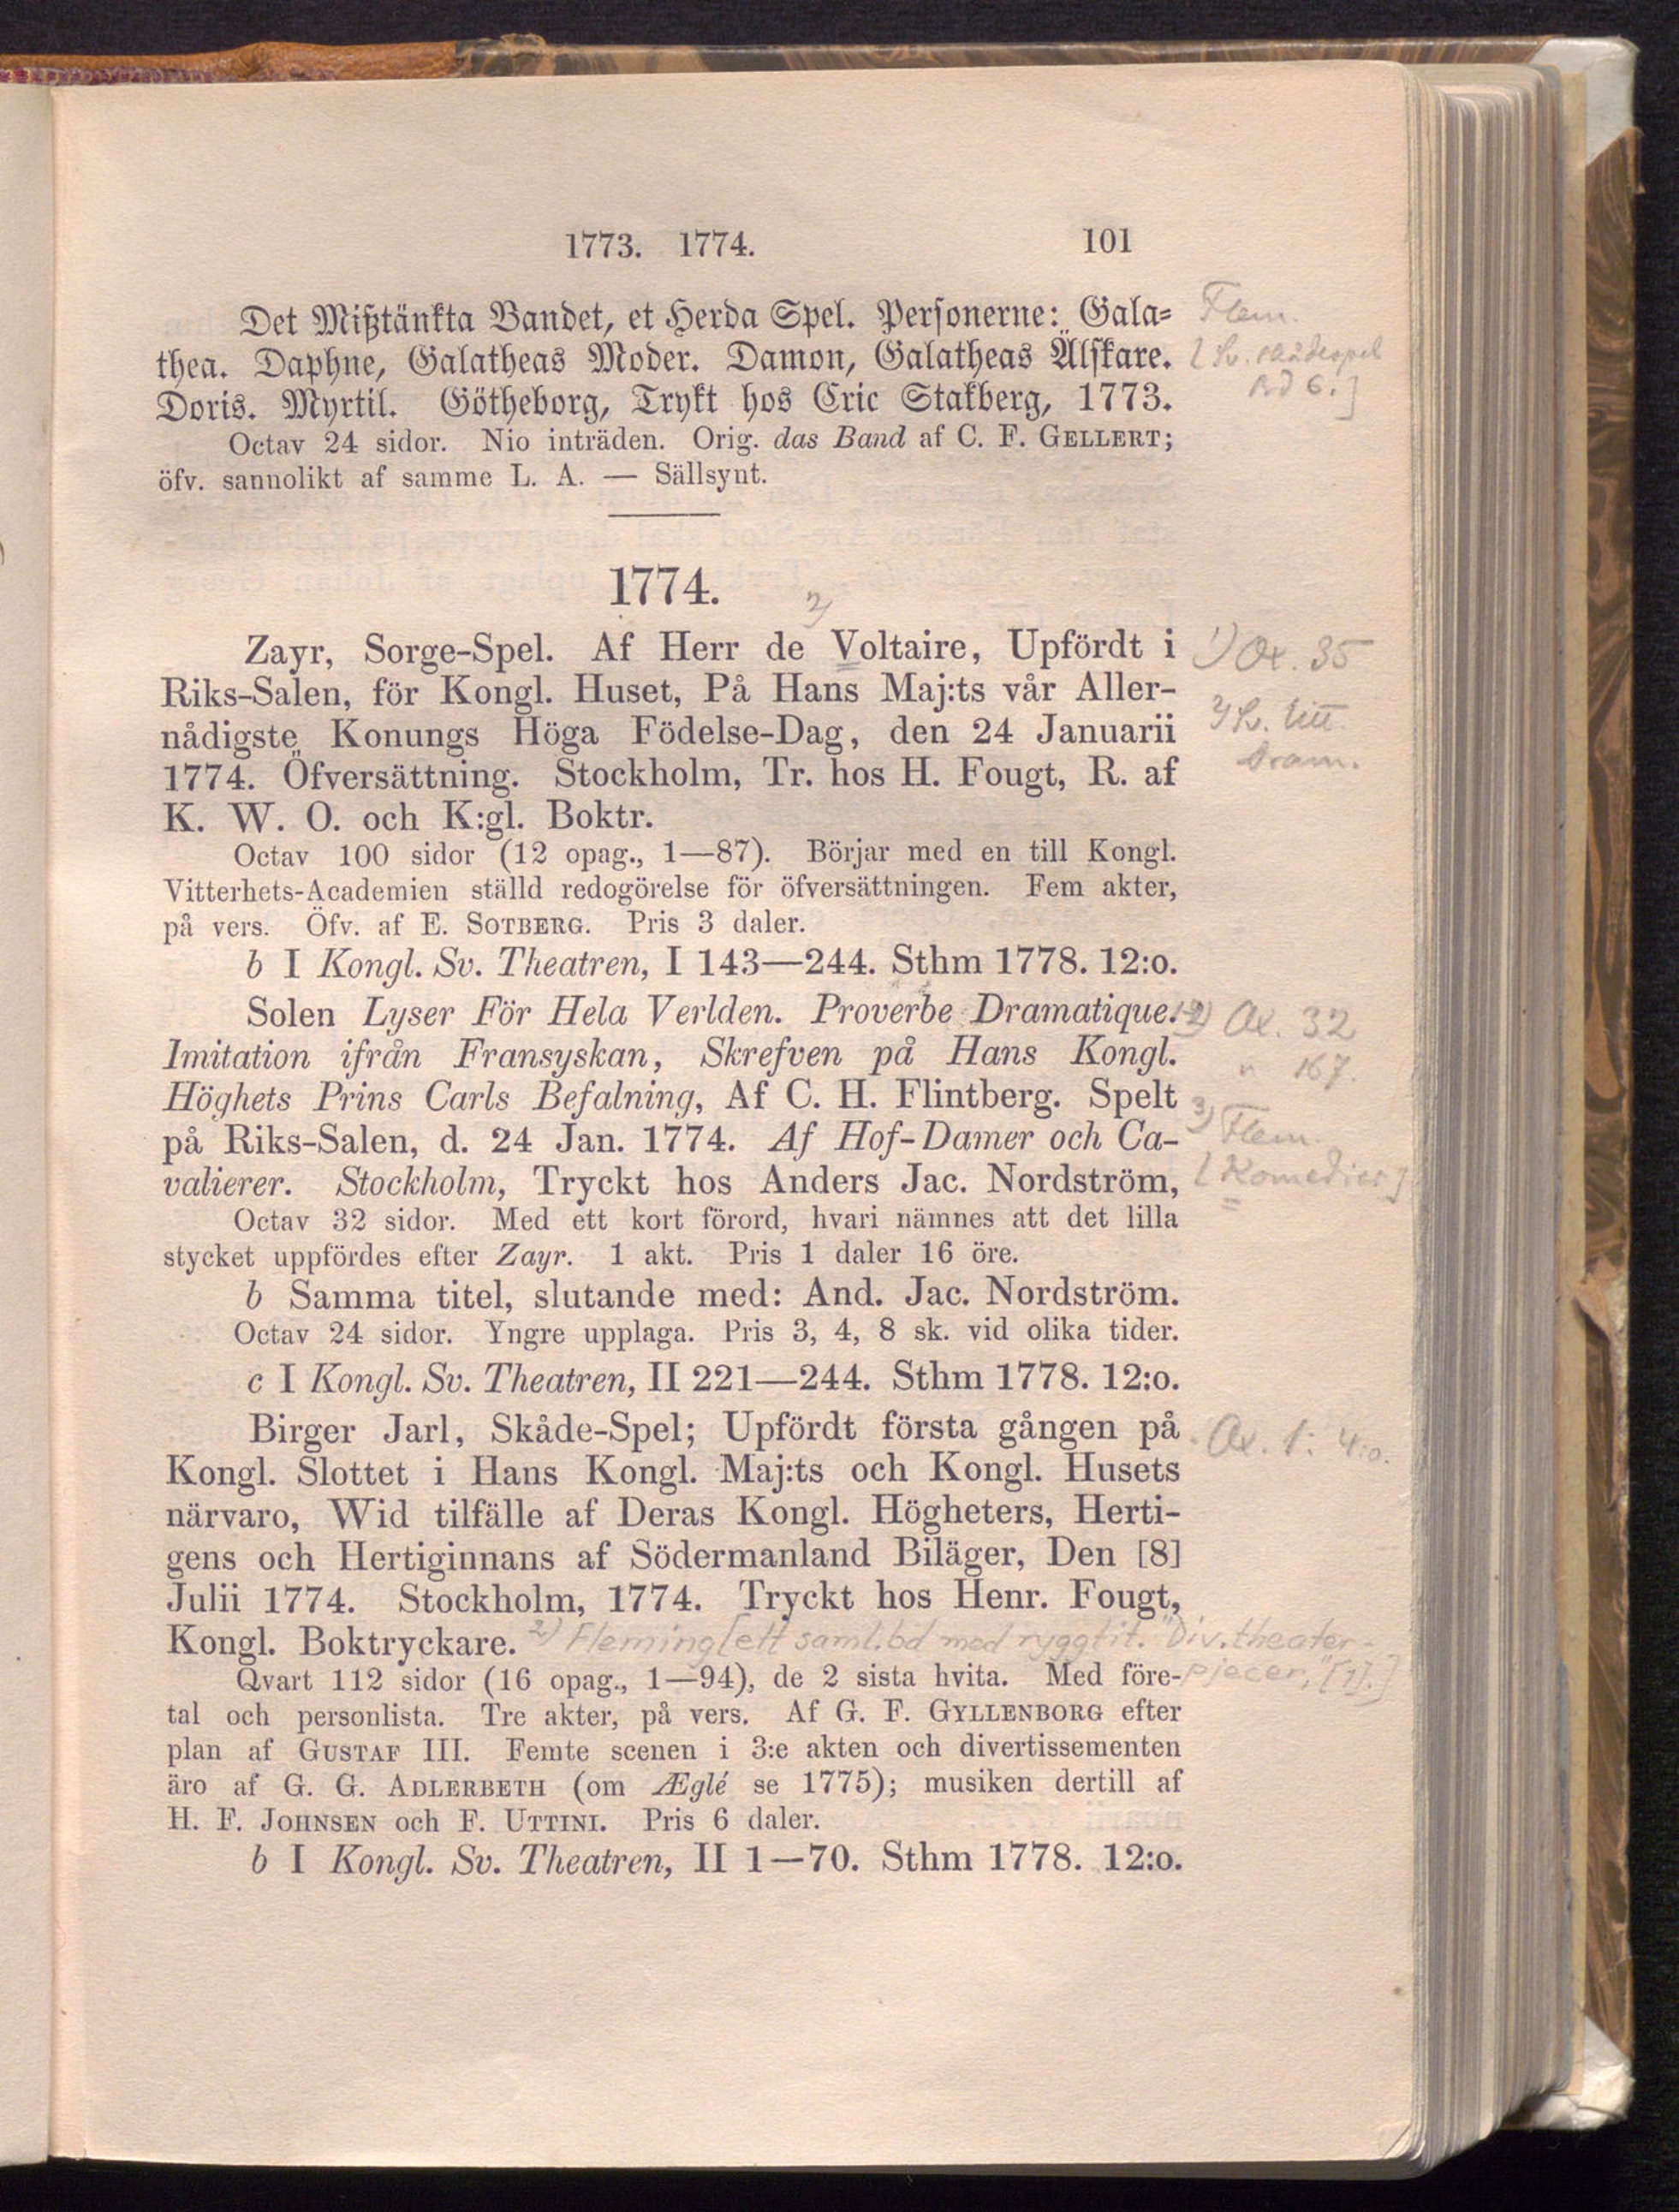 1773. 1774. 101
Det Mißtänkta Bandet, et Herda Spel. Personerne: Gala- Flem.
thea. Daphne, Galatheas Moder. Damon, Galatheas Älskare. [Sv. skådespel
Doris. Myrtil. Götheborg, Trykt hos Eric Stakberg, 1773. Bd 6.]
Octav 24 sidor. Nio inträden. Orig. das Band af C. F. GELLERT;
öfv. sannolikt af samme L. A. — Sällsynt.
1774.
2)
Zayr, Sorge-Spel. Af Herr de Voltaire, Upfördt i 1) Ox. 35
Riks-Salen, för Kongl. Huset, På Hans Maj:ts vår Aller-
nådigste Konungs Höga Födelse-Dag, den 24 Januarii 2) Sv. litt.
1774. Öfversättning. Stockholm, Tr. hos H. Fougt, R. af Dram.
K. W. O. och K:gl. Boktr.
Octav 100 sidor (12 opag., 1—87). Börjar med en till Kongl.
Vitterhets-Academien ställd redogörelse för öfversättningen. Fem akter,
på vers. Öfv. af E. SOTBERG. Pris 3 daler.
b I Kongl. Sv. Theatren, I 143—244. Sthm 1778. 12:o.
Solen Lyser För Hela Verlden. Proverbe Dramatique. 1-2) Ox. 32
Imitation ifrån Fransyskan, Skrefven på Hans Kongl. " 167.
Höghets Prins Carls Befalning, Af C. H. Flintberg. Spelt
på Riks-Salen, d. 24 Jan. 1774. Af Hof-Damer och Ca- 3) Flem.
valierer. Stockholm, Tryckt hos Anders Jac. Nordström, [Komedier]
Octav 32 sidor. Med ett kort förord, hvari nämnes att det lilla
stycket uppfördes efter Zayr. 1 akt. Pris 1 daler 16 öre.
b Samma titel, slutande med: And. Jac. Nordström.
Octav 24 sidor. Yngre upplaga. Pris 3, 4, 8 sk. vid olika tider.
c I Kongl. Sv. Theatren, II 221—244. Sthm 1778. 12:o.
Birger Jarl, Skåde-Spel; Upfördt första gången på Ox. 1: 4:o.
Kongl. Slottet i Hans Kongl. Maj:ts och Kongl. Husets
närvaro, Wid tilfälle af Deras Kongl. Högheters, Herti-
gens och Hertiginnans af Södermanland Biläger, Den [8]
Julii 1774. Stockholm, 1774. Tryckt hos Henr. Fougt,
Kongl. Boktryckare. 2) Fleming [ett saml.bd med ryggtit. "Div. theater-
Qvart 112 sidor (16 opag., 1—94), de 2 sista hvita. Med före- pjecer," [1].]
tal och personlista. Tre akter, på vers. Af G. F. GYLLENBORG efter
plan af GUSTAF III. Femte scenen i 3:e akten och divertissementen
äro af G. G. ADLERBETH (om Æglé se 1775); musiken dertill af
H. F. JOHNSEN och F. UTTINI. Pris 6 daler.
b I Kongl. Sv. Theatren, II 1—70. Sthm 1778. 12:o.